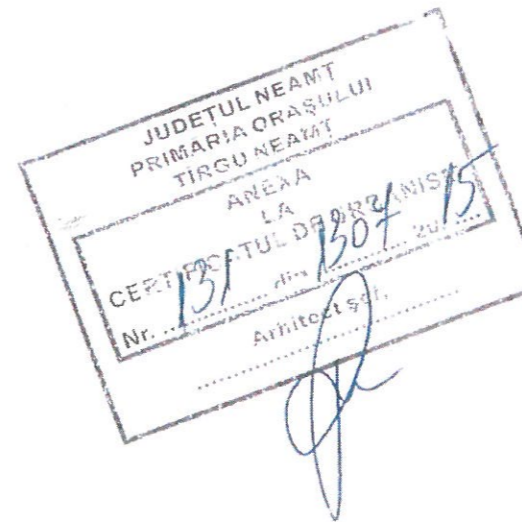 JUDEŢUL NEAMŢ
PRIMĂRIA ORAŞULUI
TÎRGU NEAMŢ
ANEXA
LA
CERTIFICATUL DE URBANISM
Nr. 131 din 1307 2015
Arhitect şef,